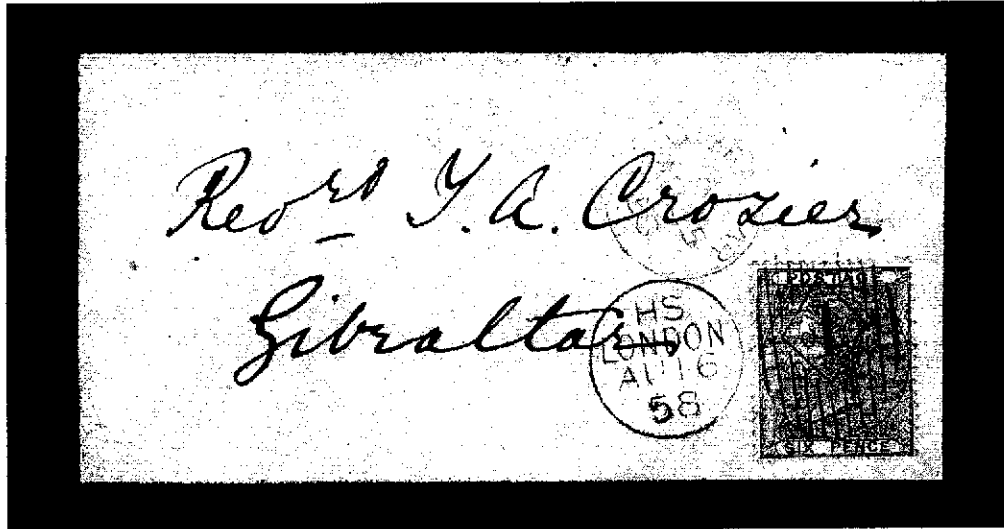 Revrd T. A. Crozier
Gibraltar
HS
LONDON
AU 16
58
POSTAGE
SIX PENCE